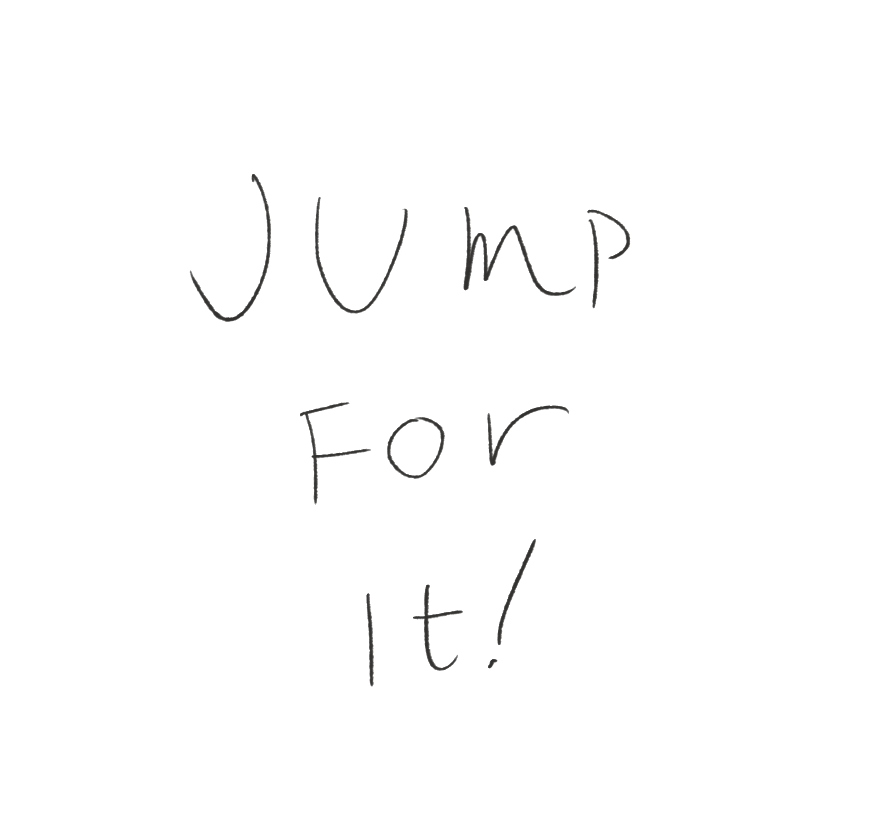 JUmP
For
It!